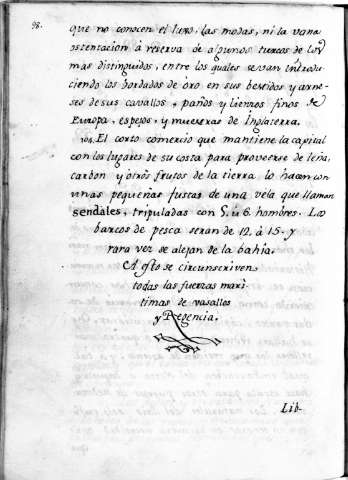 98.
que no conocen el luxo, las modas, ni la vana
ostentacion à reserva de algunos turcos de los
mas distinguidos, entre los quales se van introdu-
ciendo los bordados de oro en sus bestidos y arne-
ses de sus cavallos, paños y lienzos finos de
Europa, espejos, y muestras de Inglaterra.
104. El corto comercio que mantiene la capital
con los lugares de su costa para proveerse de leña,
carbon y otros frutos de la tierra lo hacen con
unas pequeñas fustas de una vela que llaman
sendales, tripuladas con 5. ù 6. hombres. Los
barcos de pesca seran de 12. à 15. y
rara vez se alejan de la bahia.
A esto se circunscriven
todas las fuerzas mari-
timas de vasallos
y Regencia.
Lib-